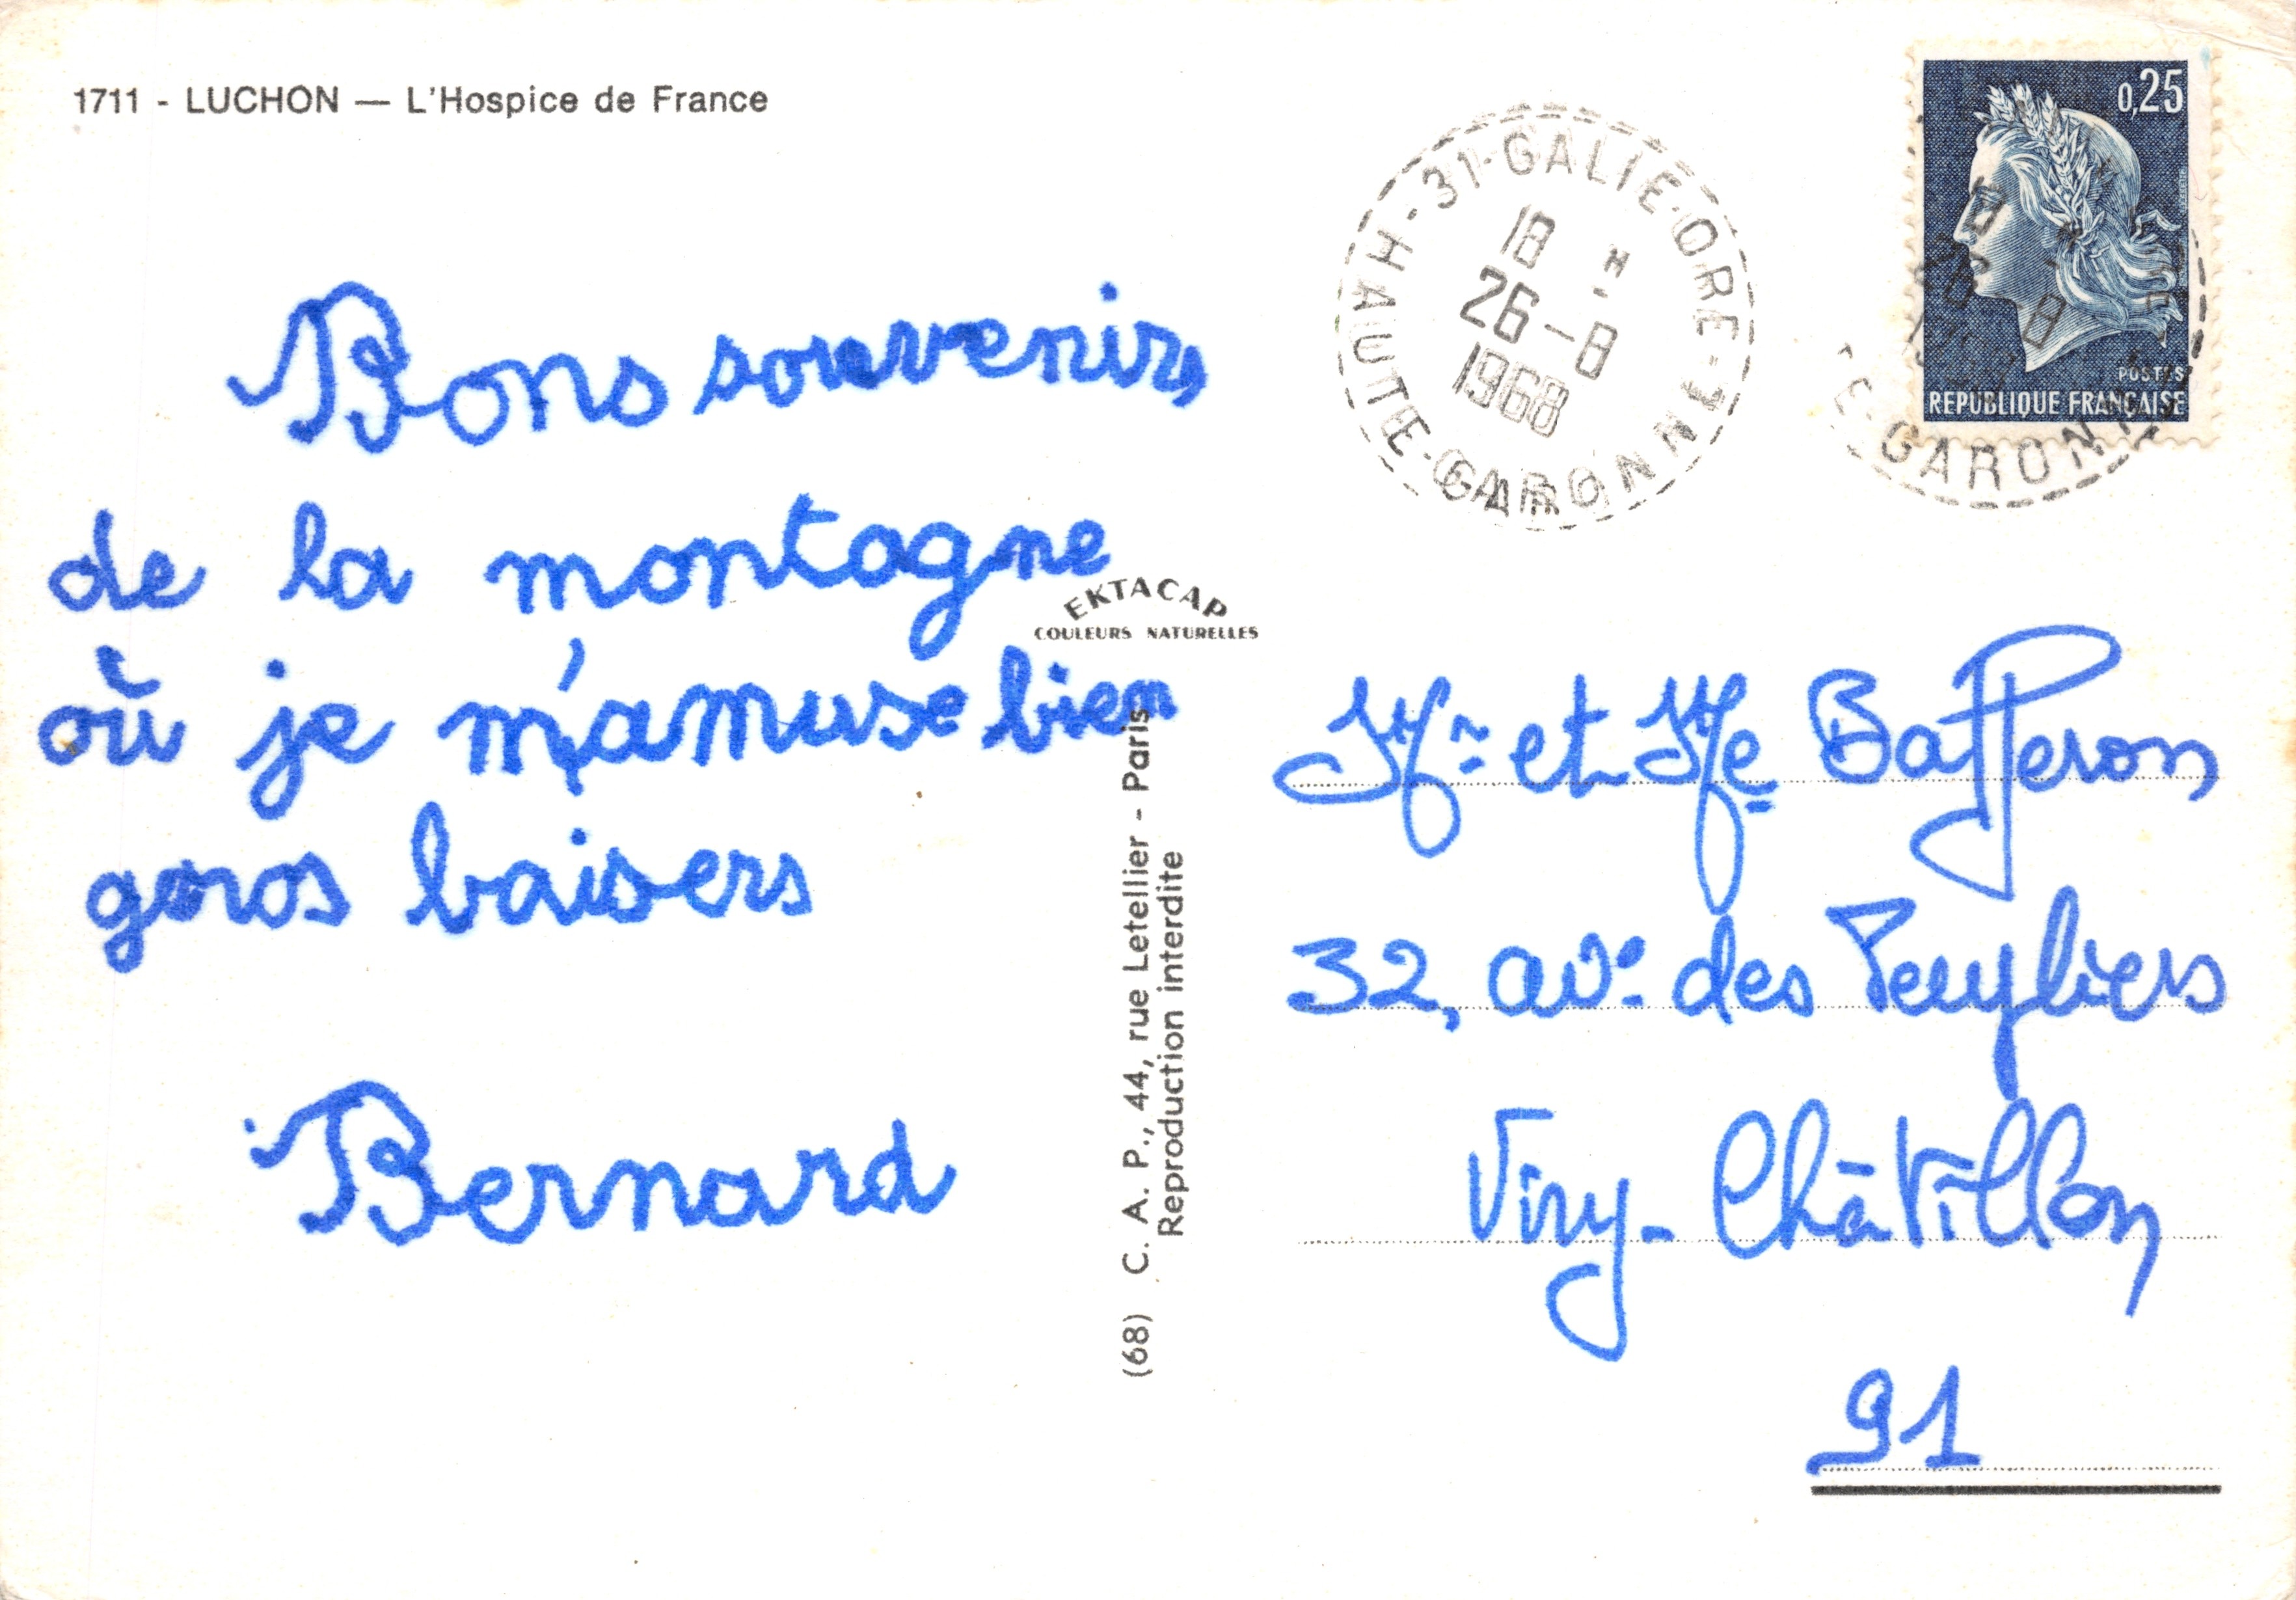 1711 - LUCHON — L'Hospice de France
Bons souvenirs
de la montagne
où je m'amuse bien
gros baisers
Bernard
EKTACAP
COULEURS NATURELLES
(68) C. A. P., 44, rue Letellier - Paris
Reproduction interdite
31-GALIE-ORE
HAUTE-GARONNE
18 H
26-8
1968
0,25
POSTES
REPUBLIQUE FRANÇAISE
26 8
E-GARONNE
Mr et Me Bafferon
32, av. des Peupliers
Viry-Châtillon
91